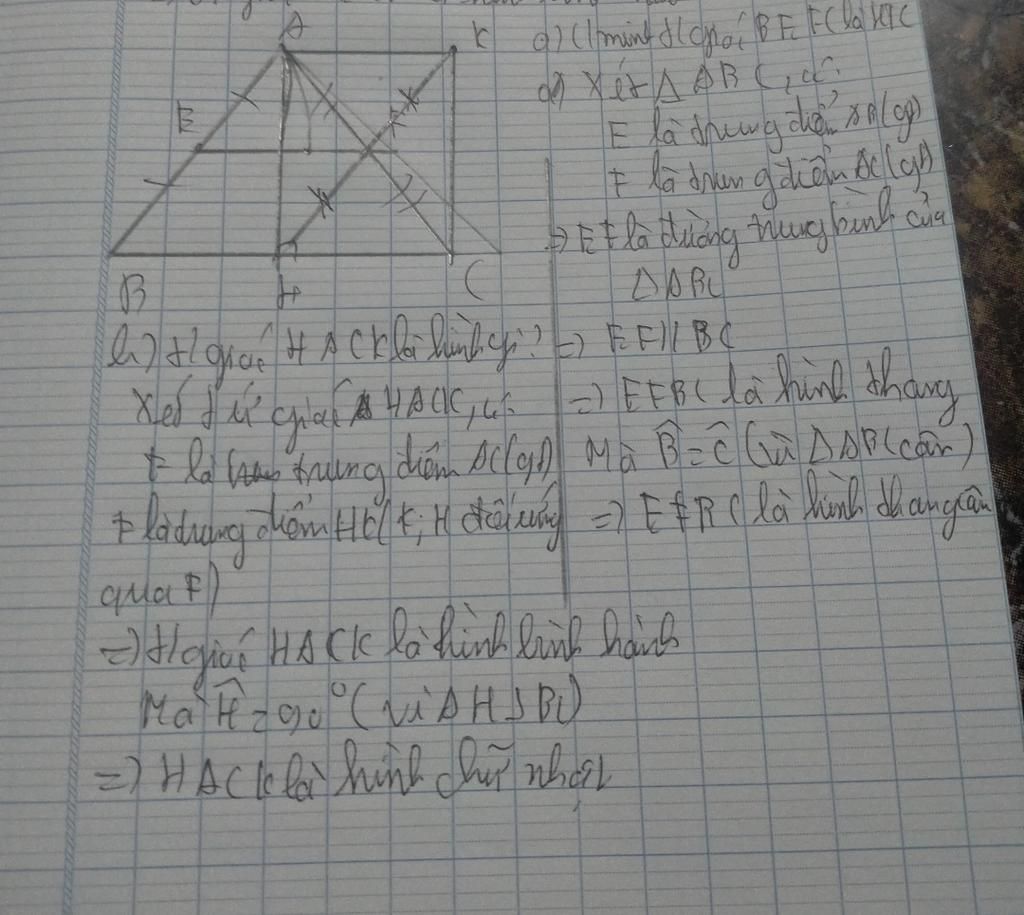 A
K
E
F
B
H
C
a) C/minh t/giác BEFC là HTC
a) Xét △ABC, có:
E là trung điểm AB (gt)
F là trung điểm AC (gt)
=> EF là đường trung bình của
△ABC
=> EF // BC
=> EFBC là hình thang
Mà B̂ = Ĉ (vì △ABC cân)
=> EFBC là hình thang cân
b) t/giác HACK là hình gì?
Xét tứ giác HACK, có:
F là trung điểm AC (gt)
F là trung điểm HK (K; H đối xứng
qua F)
=> t/giác HACK là hình bình hành
Mà Ĥ = 90° (vì AH ⊥ BC)
=> HACK là hình chữ nhật